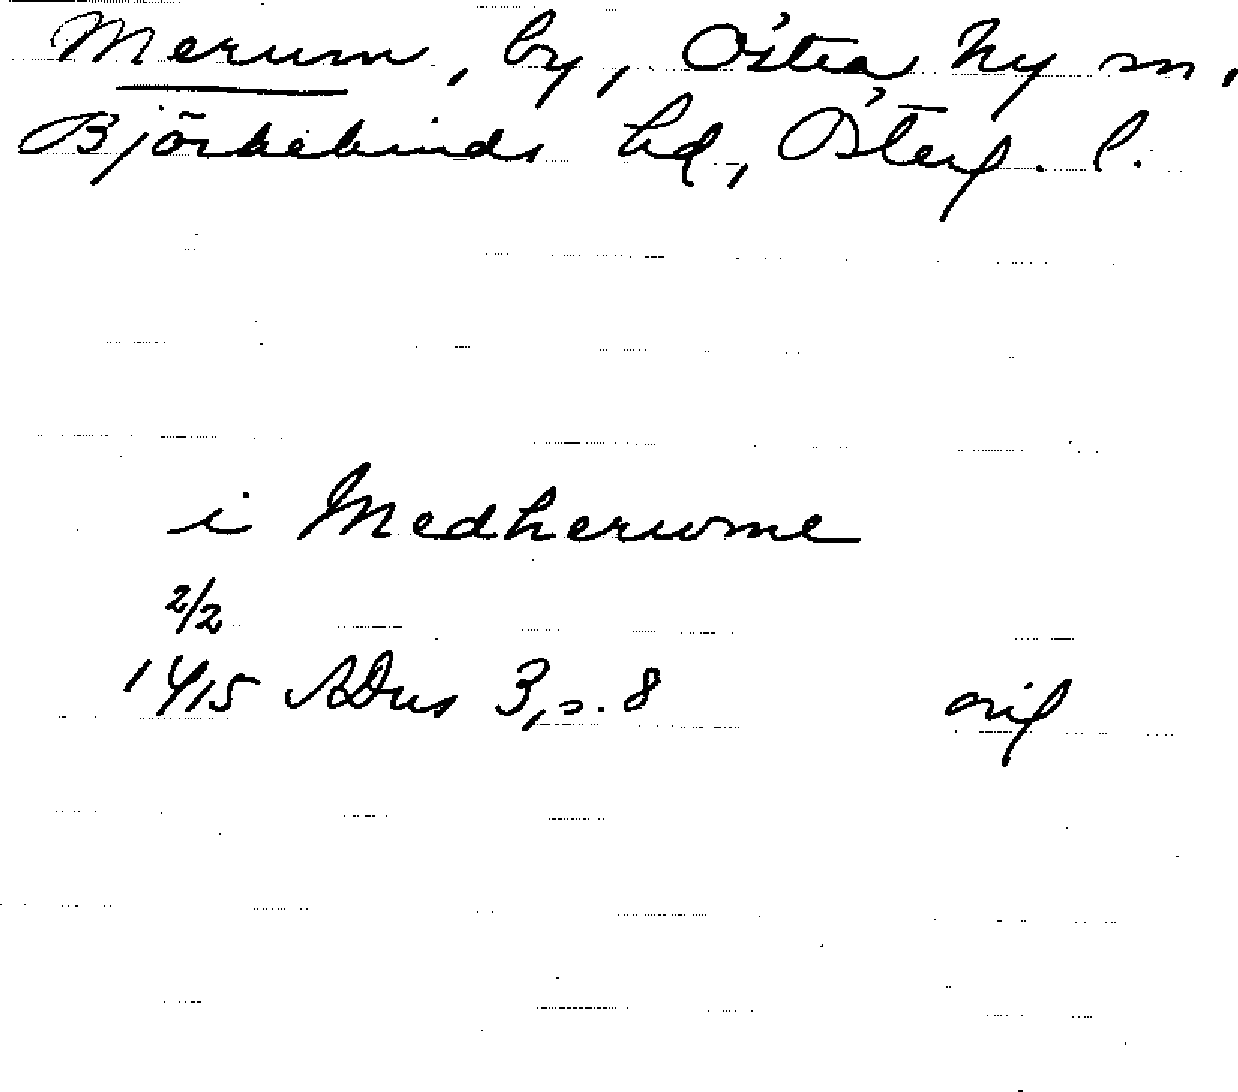 Merum, by, Östra Ny sn,
Björkekinds hd, Österg. l.
i Medherwme
2/2
1415 SDns 3, s. 8 orig